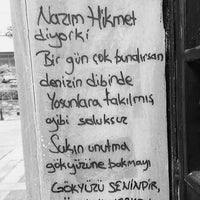 Nazım Hikmet
diyorki
Bir gün çok bunalırsan
denizin dibinde
Yosunlara takılmış
gibi soluksuz
Sakın unutma
gökyüzüne bakmayı
GÖKYÜZÜ SENİNDİR,